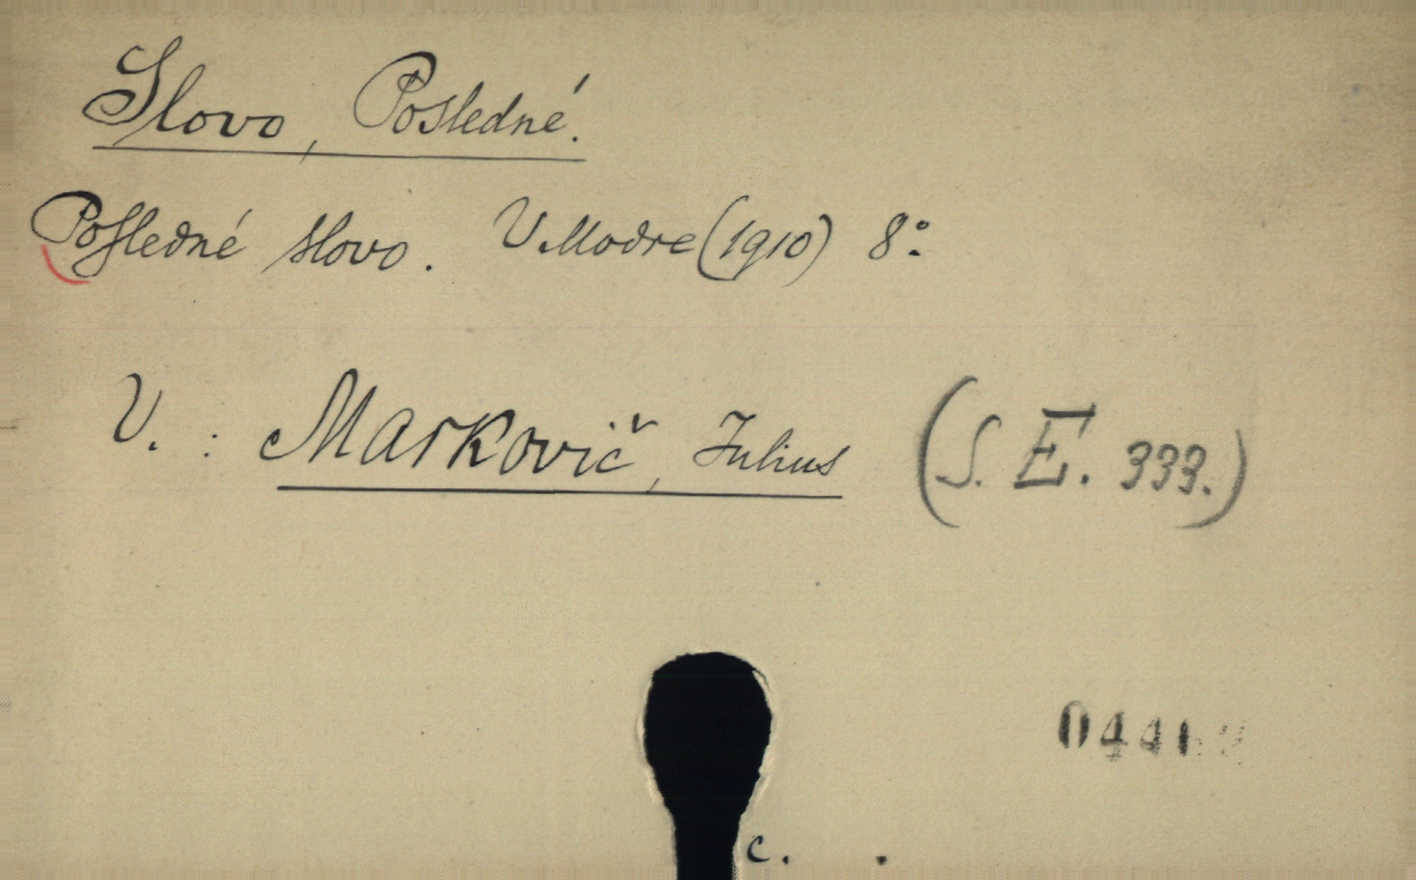 Slovo, Posledné.
Posledné slovo. V Modre (1910) 8°:
V. : Markovič, Julius (S. E. 333.)
c. .